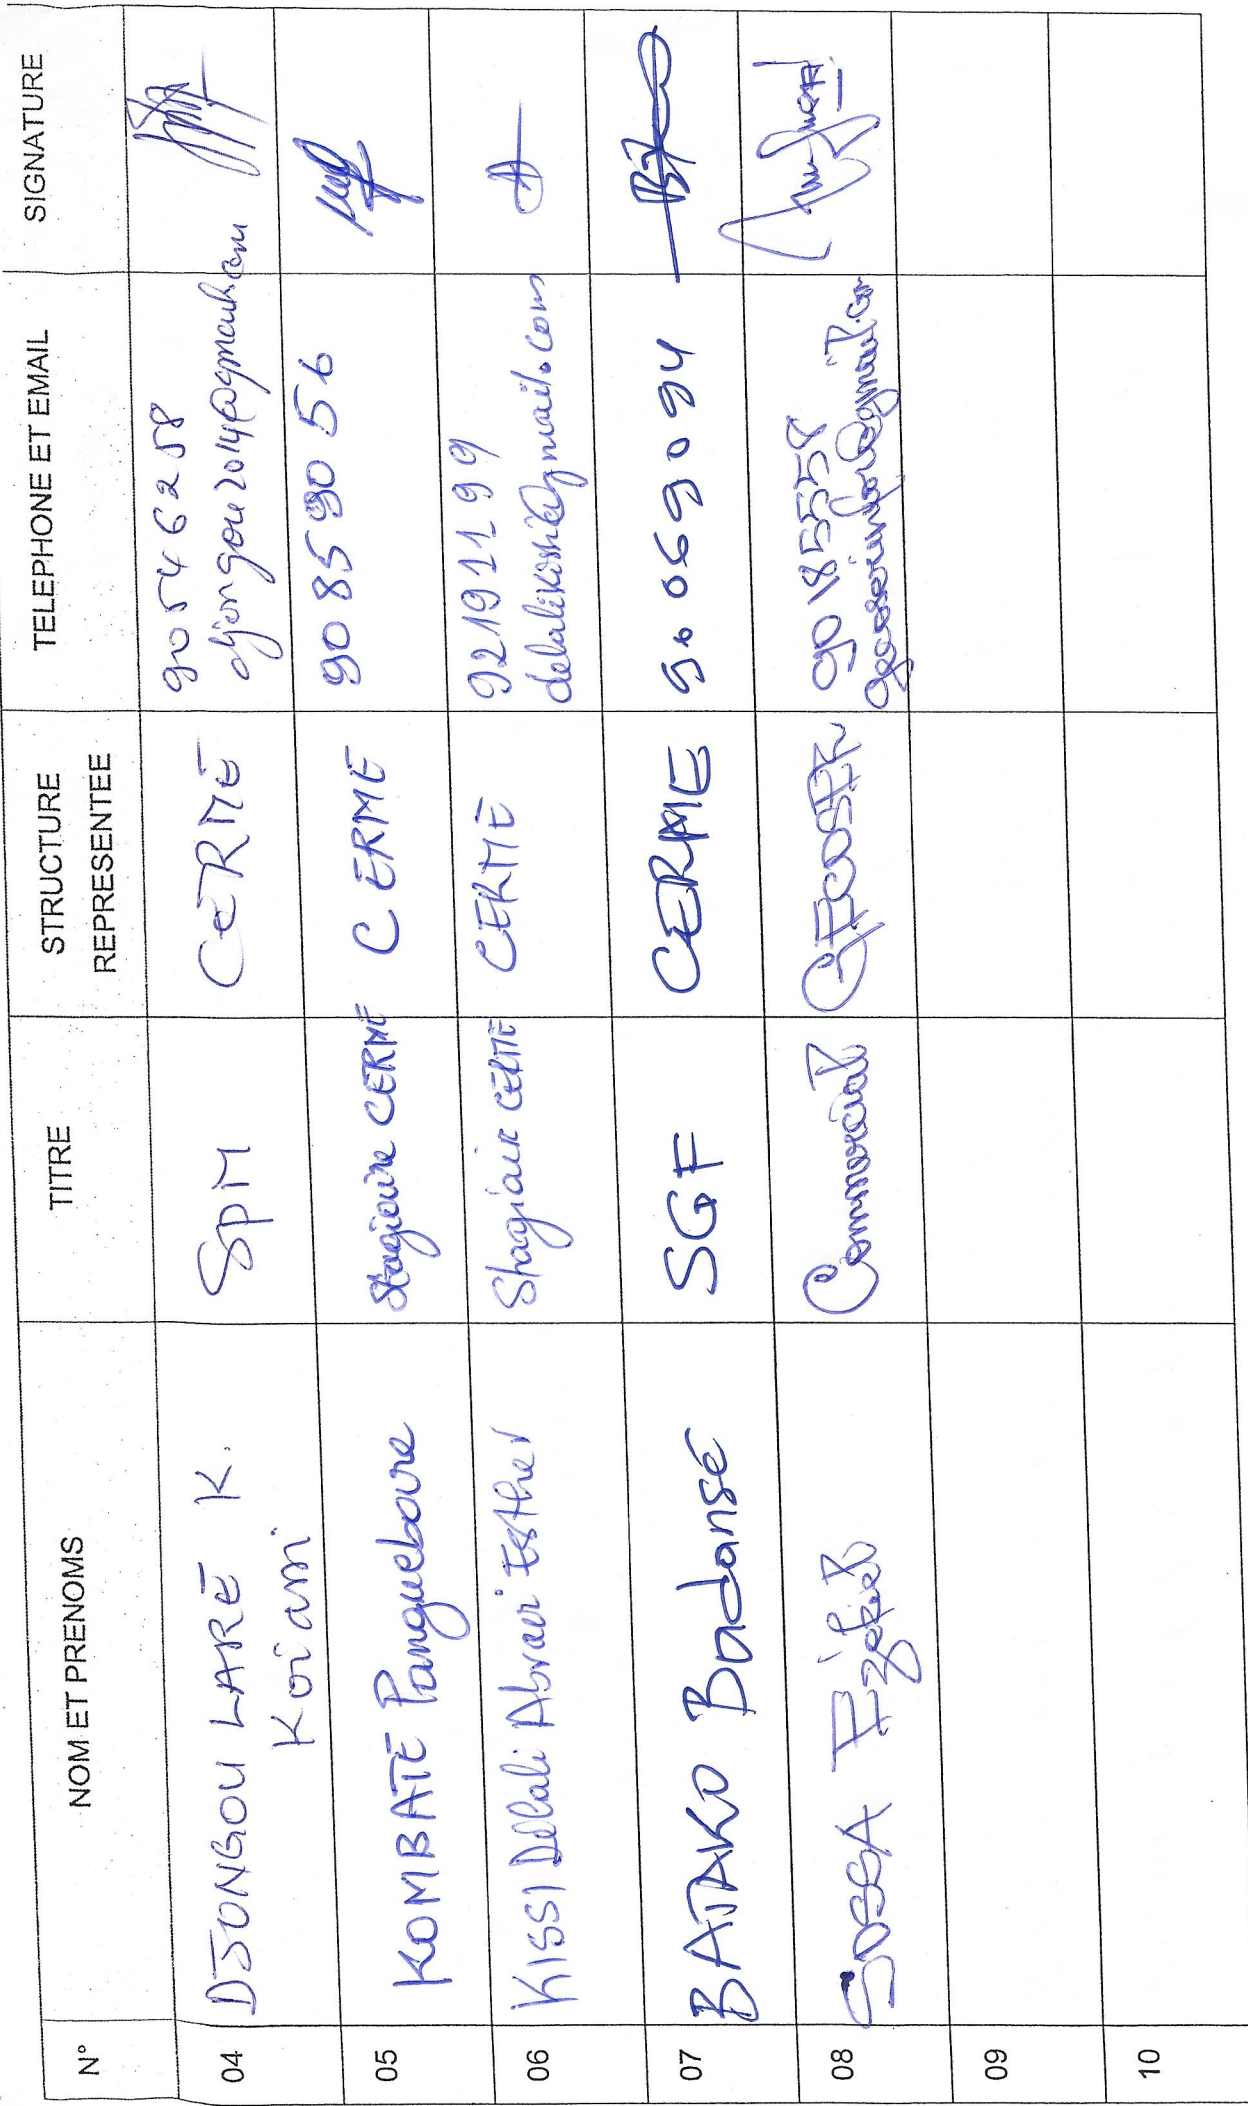 N° NOM ET PRENOMS TITRE STRUCTURE REPRESENTEE TELEPHONE ET EMAIL SIGNATURE
04 DJONGOU LARÉ K. SPM CERME 90546258
Koiami djongou2014@gmail.com
05 KOMBATE Pangueboure Stagiaire CERME CERME 90859056
06 KISSI Delali Abravi Esther Stagiair CERME CERME 92191199
07 BATAKO Badansé SGF CERME 90069094
08 SOSSA Ezékiel Commercial 90185558
09
10